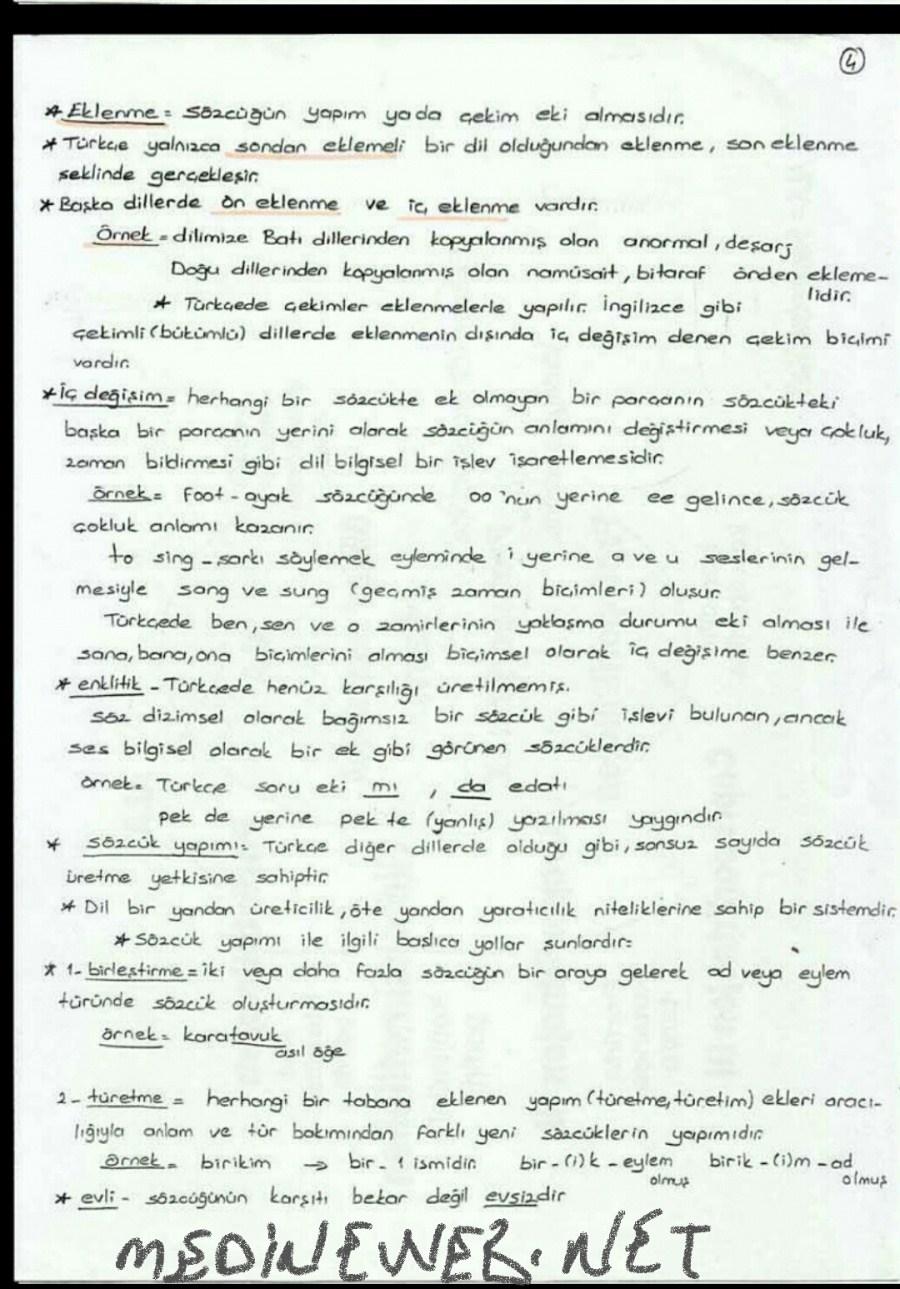 4
* Eklenme = Sözcüğün yapım yada çekim eki almasıdır.
* Türkçe yalnızca sondan eklemeli bir dil olduğundan eklenme, son eklenme
seklinde gerçekleşir.
* Başka dillerde ön eklenme ve iç eklenme vardır.
Örnek = dilimize Batı dillerinden kopyalanmış olan anormal, deşarj
Doğu dillerinden kopyalanmış olan namüsait, bitaraf önden ekleme-
lidir.
* Türkçede çekimler eklenmelerle yapılır. İngilizce gibi
çekimli (bükümlü) dillerde eklenmenin dışında iç değişim denen çekim biçimi
vardır.
* İç değişim = herhangi bir sözcükte ek olmayan bir parçanın sözcükteki
başka bir parçanın yerini alarak sözcüğün anlamını değiştirmesi veya çokluk,
zaman bildirmesi gibi dil bilgisel bir işlev işaretlemesidir.
örnek = Foot - ayak sözcüğünde oo'nun yerine ee gelince, sözcük
çokluk anlamı kazanır.
to sing - şarkı söylemek eyleminde i yerine a ve u seslerinin gel-
mesiyle sang ve sung (geçmiş zaman biçimleri) oluşur.
Türkçede ben, sen ve o zamirlerinin yaklaşma durumu eki alması ile
sana, bana, ona biçimlerini alması biçimsel olarak iç değişime benzer.
* enklitik - Türkçede henüz karşılığı üretilmemiş.
Söz dizimsel olarak bağımsız bir sözcük gibi işlevi bulunan, ancak
ses bilgisel olarak bir ek gibi görünen sözcüklerdir.
örnek = Türkçe soru eki mı, da edatı
pek de yerine pek te (yanlış) yazılması yaygındır.
* sözcük yapımı = Türkçe diğer dillerde olduğu gibi, sonsuz sayıda sözcük
üretme yetkisine sahiptir.
* Dil bir yandan üreticilik, öte yandan yaratıcılık niteliklerine sahip bir sistemdir.
* Sözcük yapımı ile ilgili başlıca yollar şunlardır=
* 1- birleştirme = iki veya daha fazla sözcüğün bir araya gelerek ad veya eylem
türünde sözcük oluşturmasıdır.
örnek = karatavuk
asıl öğe
2- türetme = herhangi bir tabana eklenen yapım (türetme, türetim) ekleri aracı-
lığıyla anlam ve tür bakımından farklı yeni sözcüklerin yapımıdır.
örnek = birikim → bir - 1 ismidir. bir - (i)k - eylem birik - (i)m - ad
olmuş olmuş
* evli - sözcüğünün karşıtı bekar değil evsizdir
MEDİNEWEB.NET